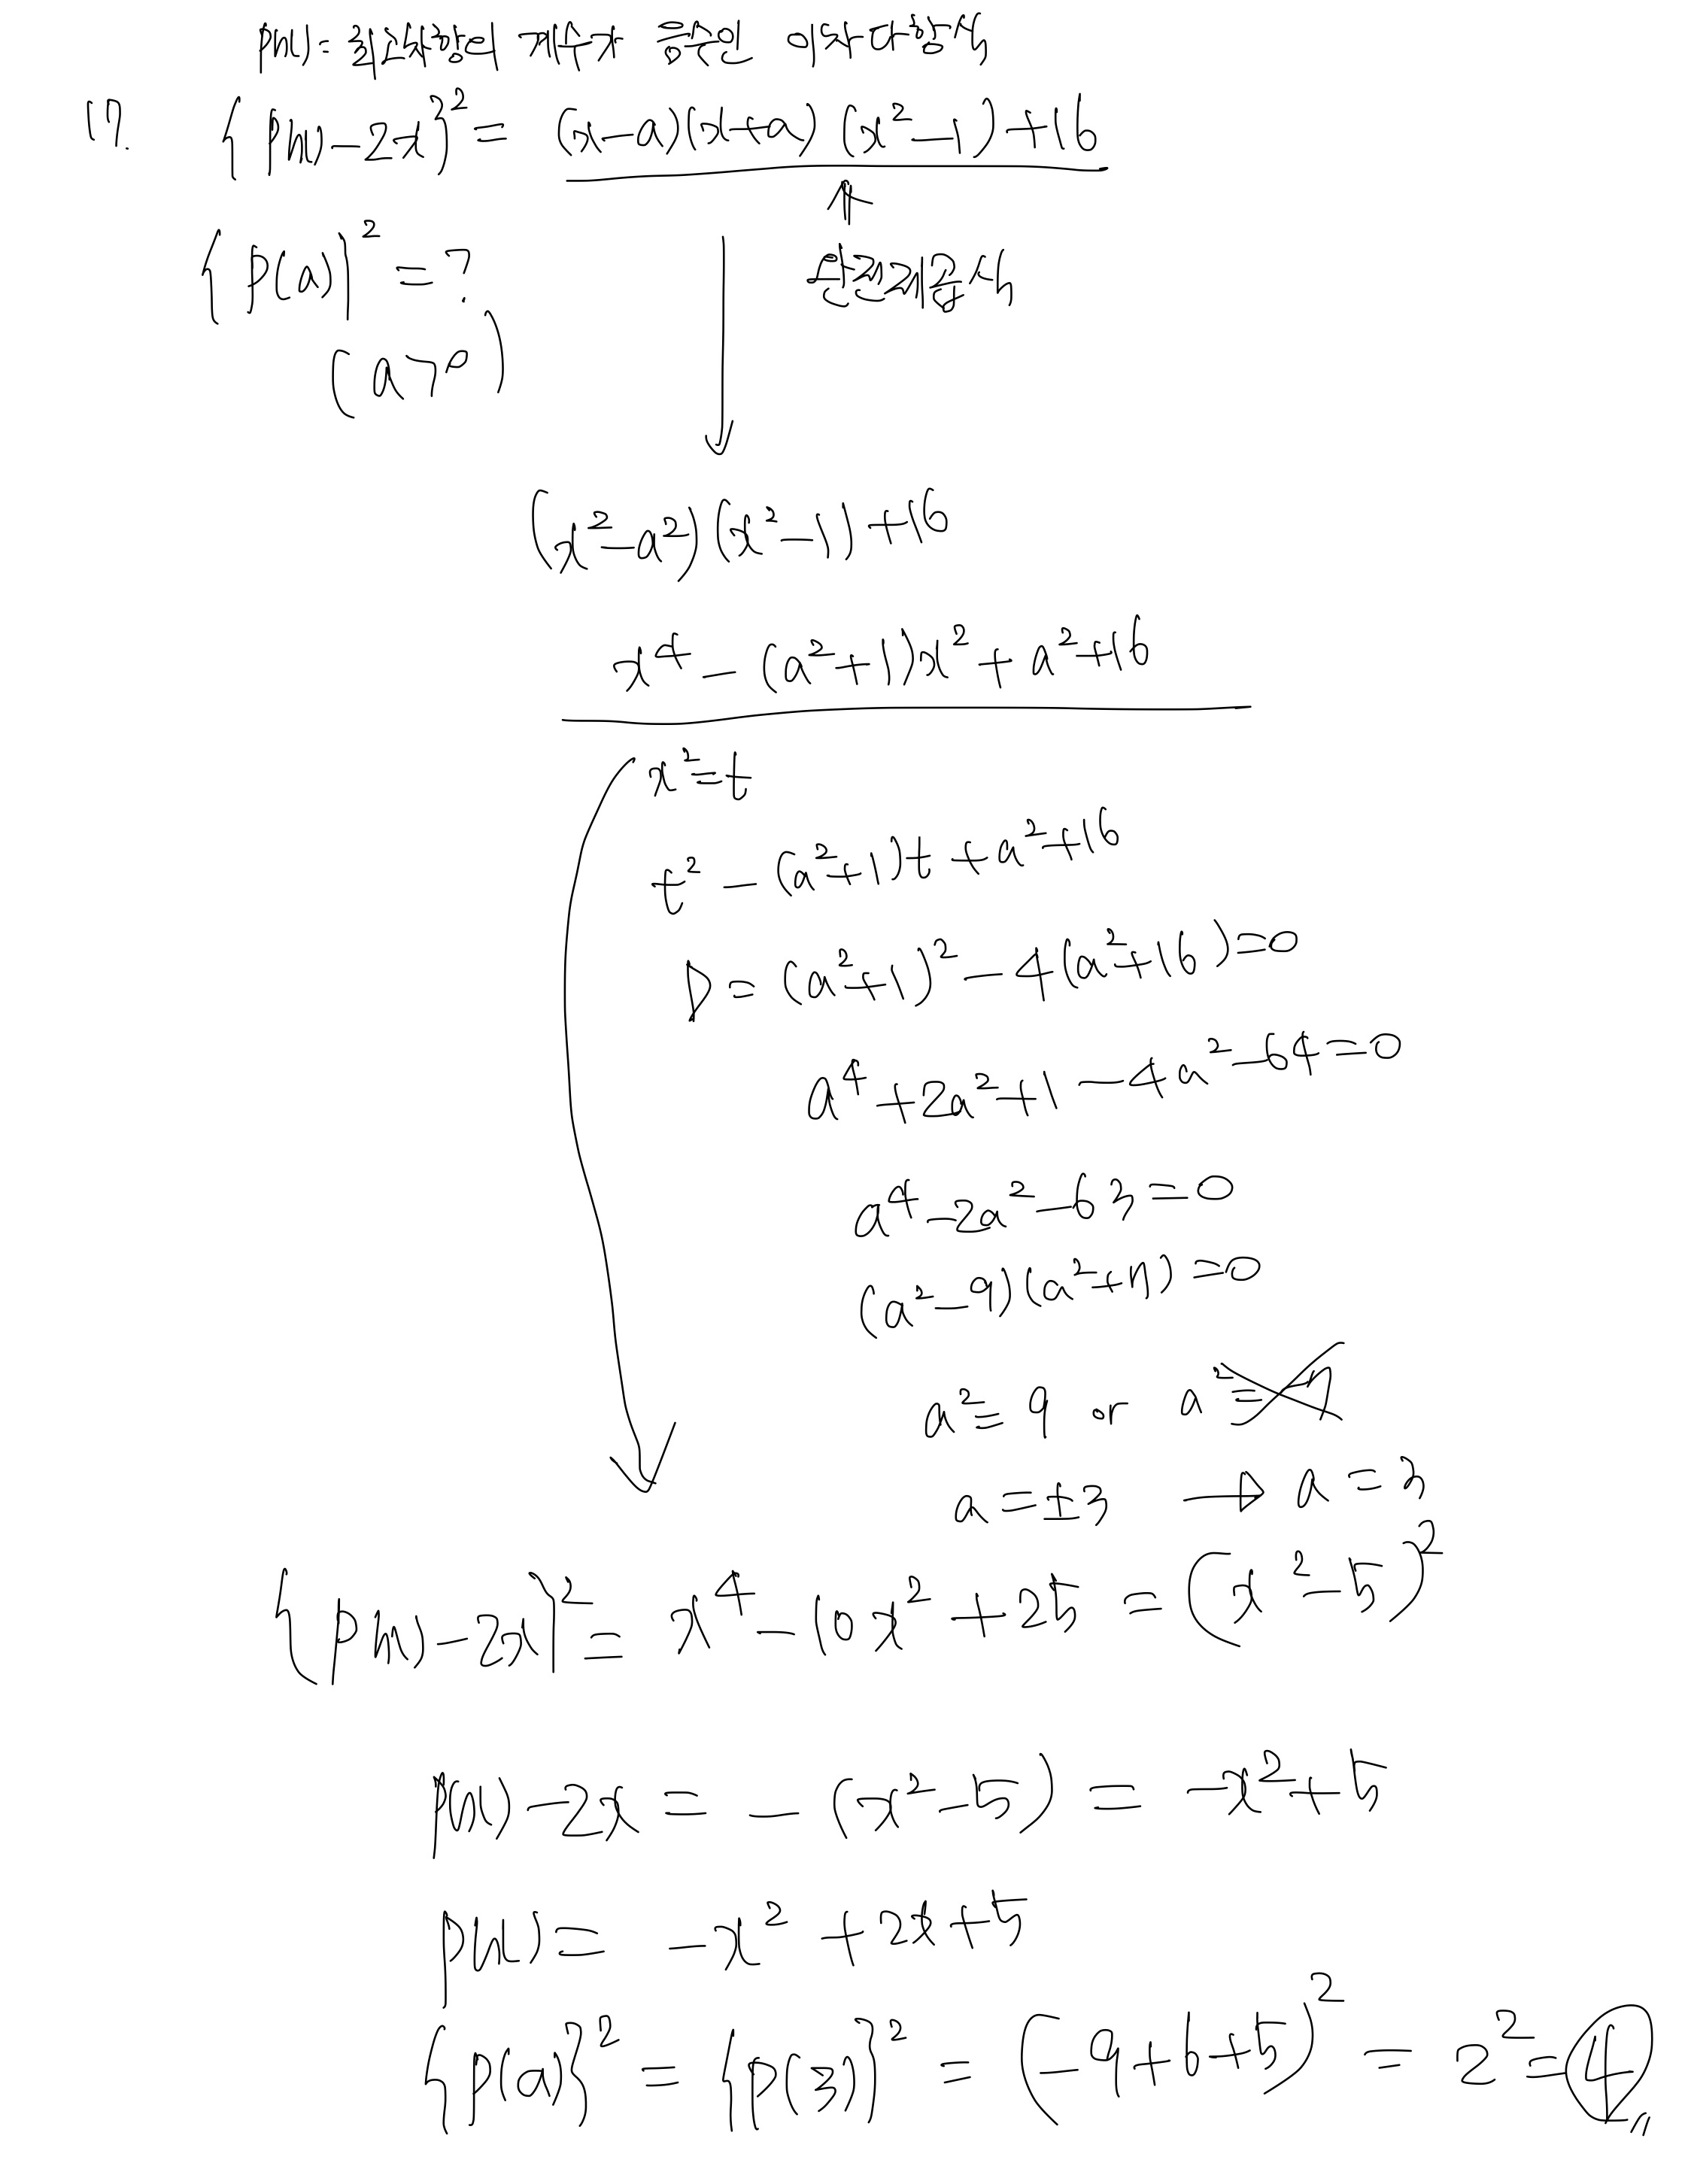 P(x) = 최고차항의 계수가 음수인 이차다항식
17. {P(x)-2x}² = (x-a)(x+a)(x²-1)+16
{P(a)}² = ?
완전제곱식
(a>0)
(x²-a²)(x²-1)+16
x⁴-(a²+1)x²+a²+16
x²=t
t²-(a²+1)t+a²+16
D=(a²+1)²-4(a²+16)=0
a⁴+2a²+1-4a²-64=0
a⁴-2a²-63=0
(a²-9)(a²+7)=0
a²=9 or a²=-7
a=±3 → a=3
{P(x)-2x}² = x⁴-10x²+25 = (x²-5)²
P(x)-2x = -(x²-5) = -x²+5
P(x) = -x²+2x+5
{P(a)}² = {P(3)}² = (-9+6+5)² = 2² = 4